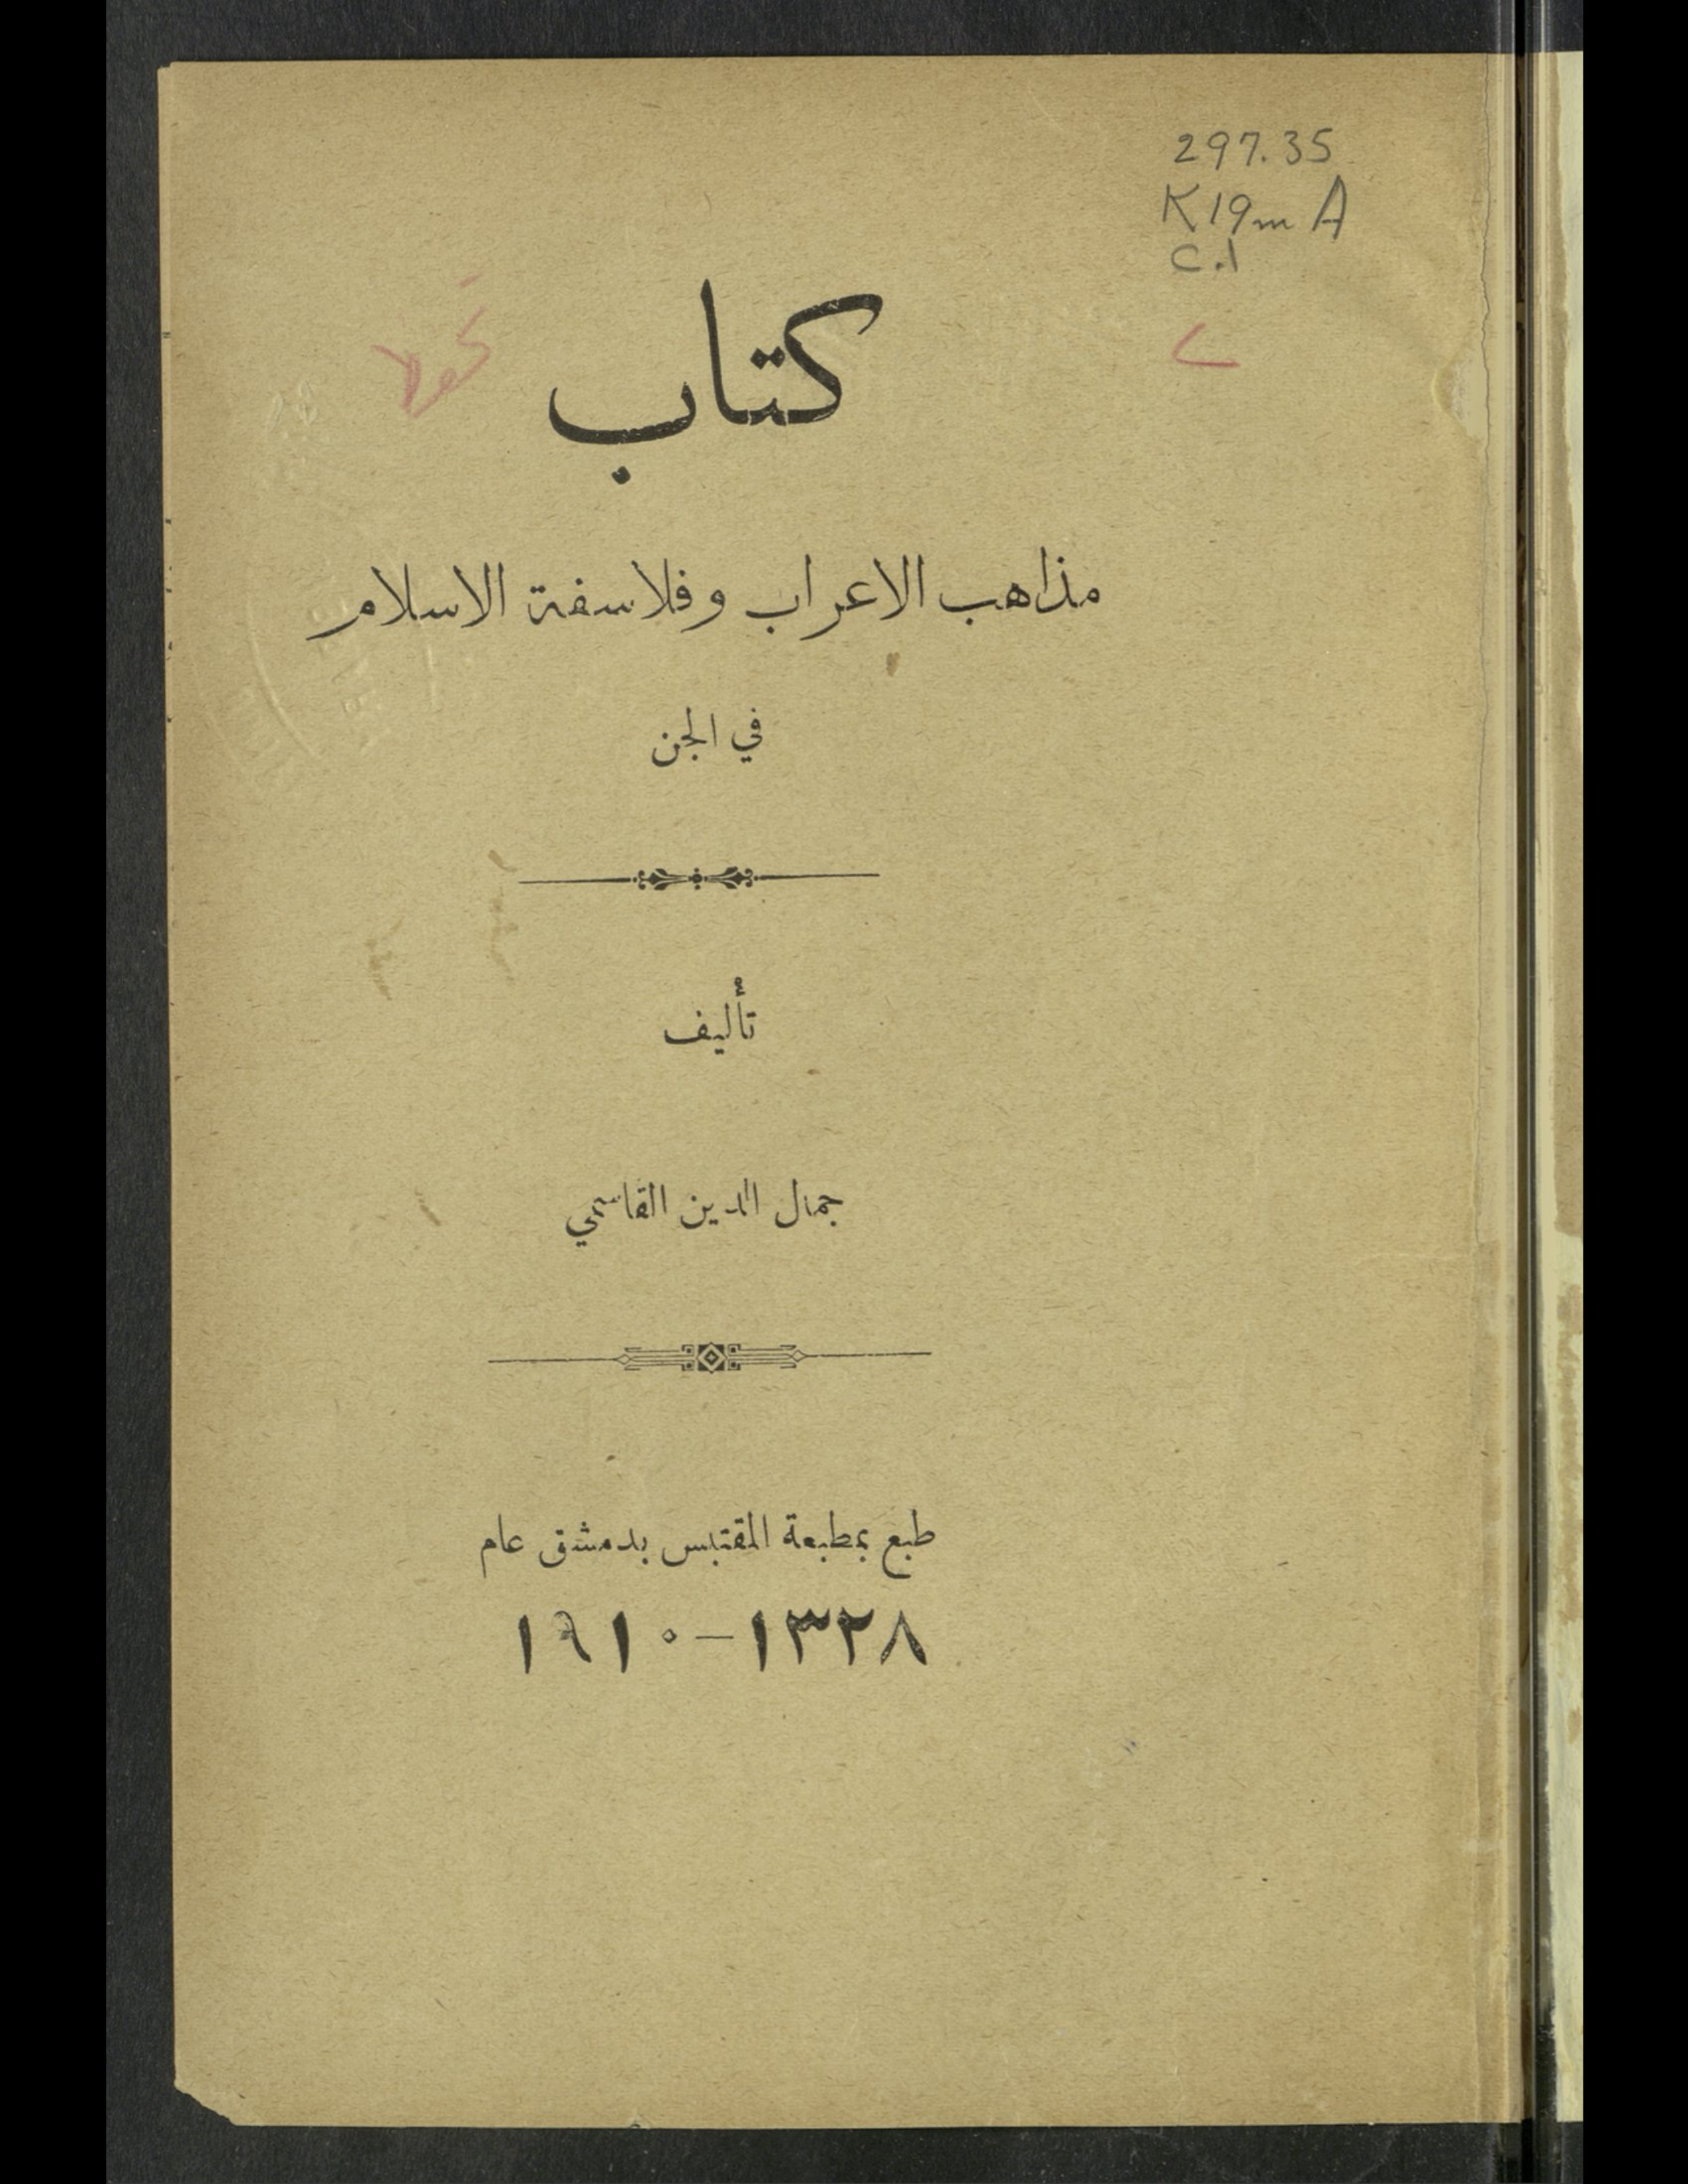 297.35
K19mA
c.1
كتاب
مذاهب الاعراب وفلاسفة الاسلام
في الجن
تأليف
جمال الدين القاسمي
طبع بمطبعة المقتبس بدمشق عام
١٣٢٨-١٩١٠